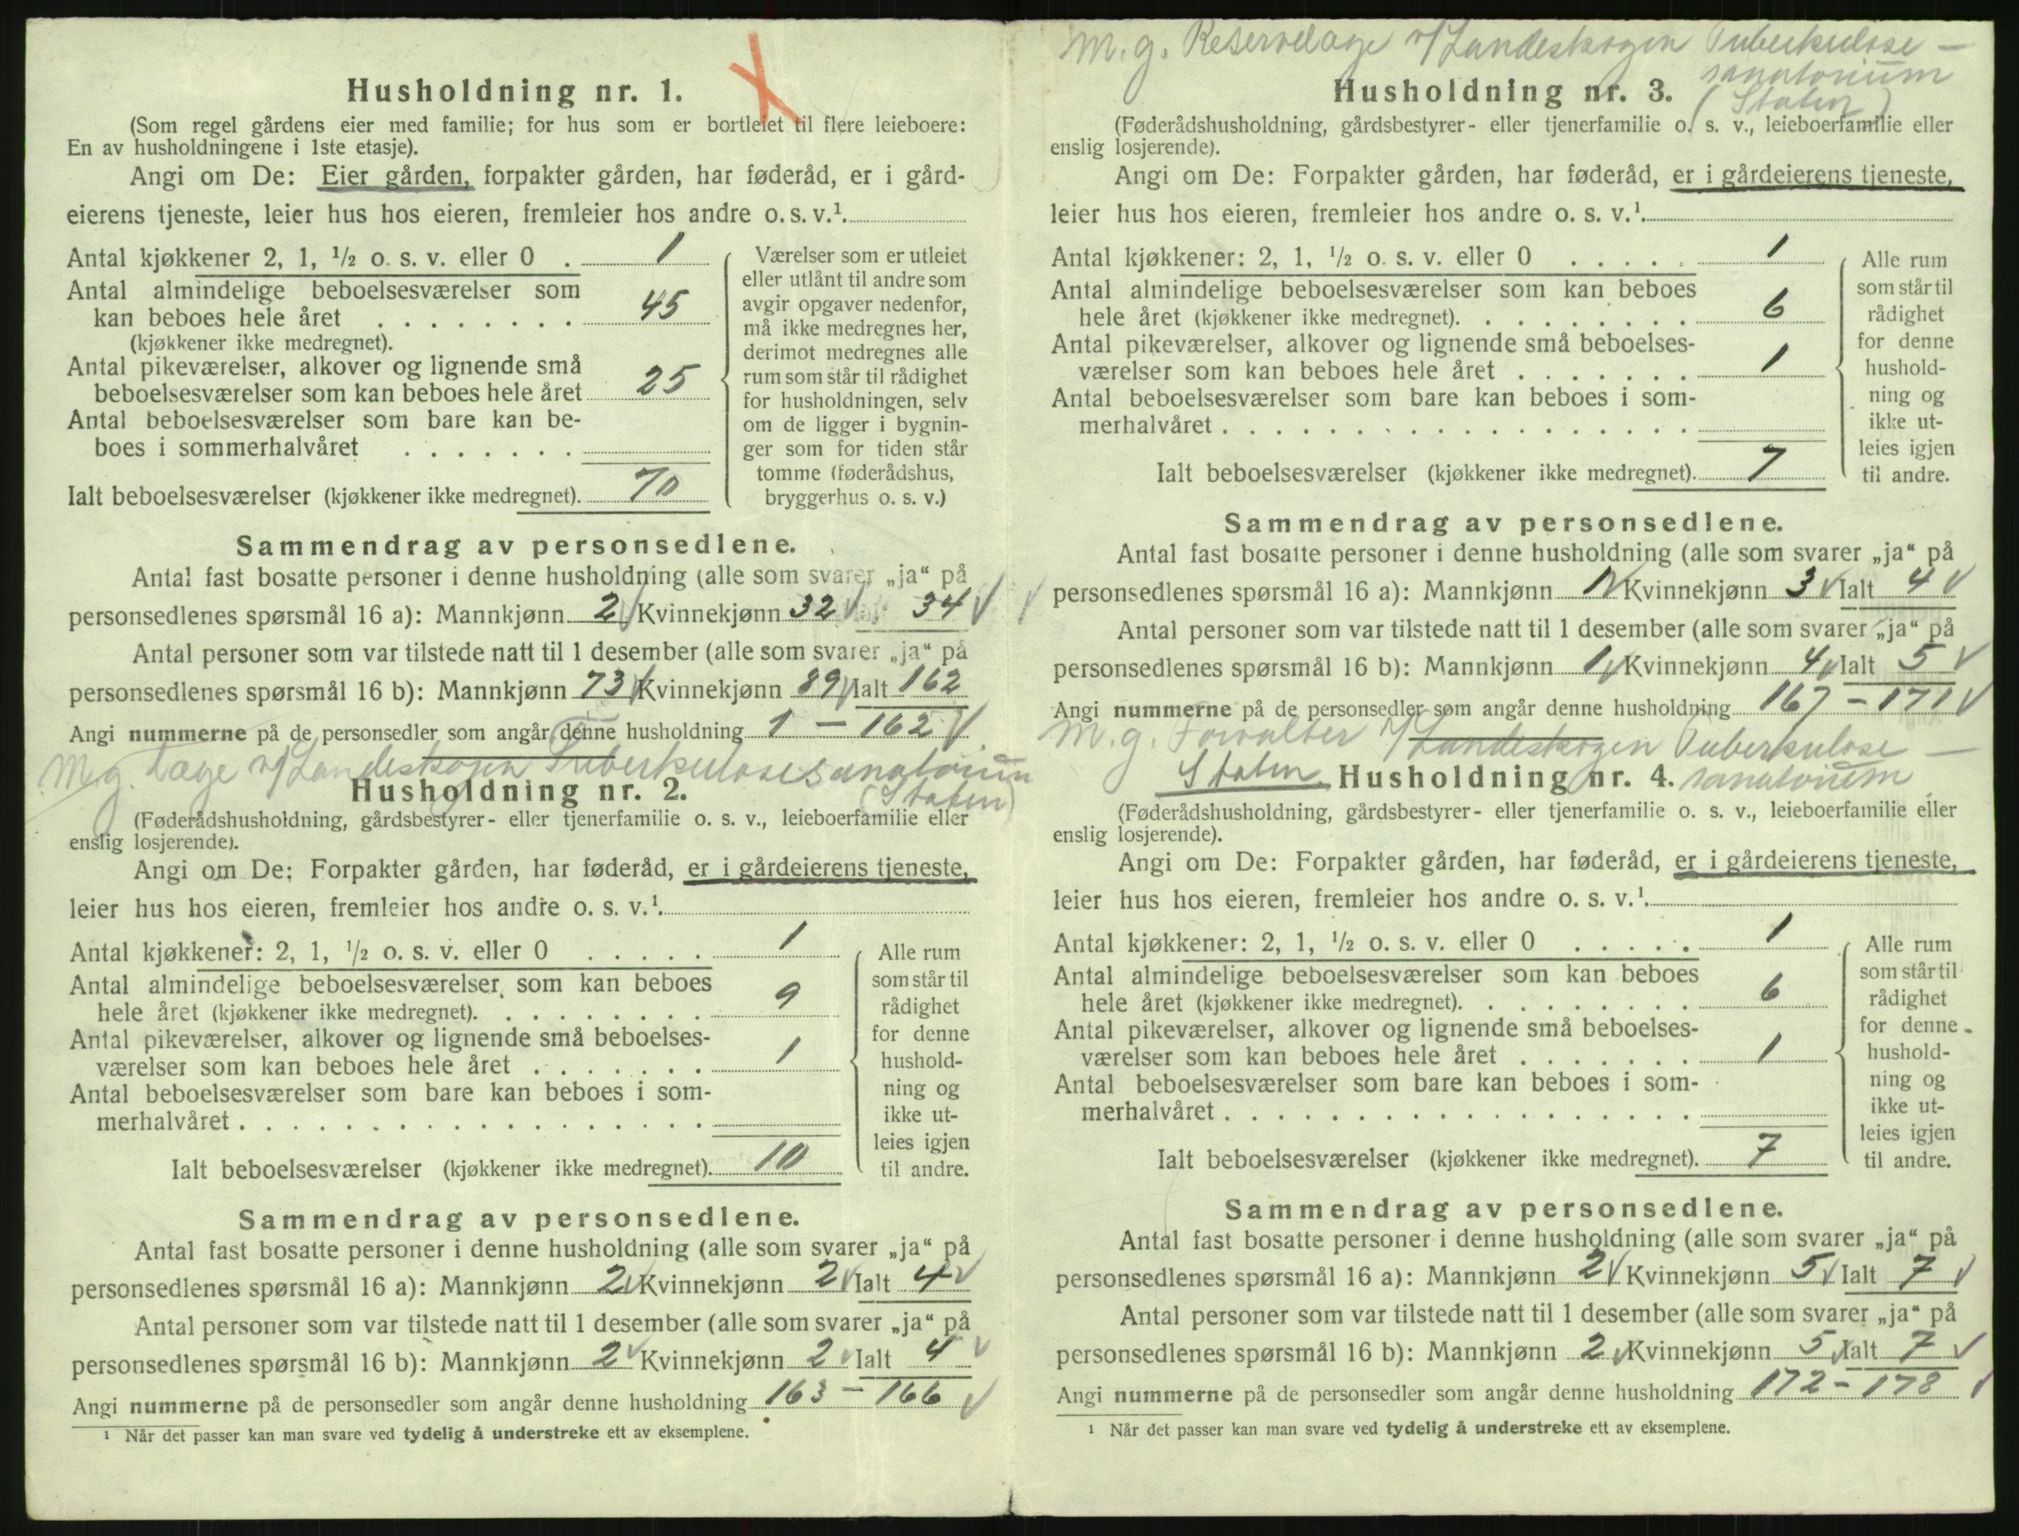 Husholdning nr. 1.
(Som regel gårdens eier med familie; for hus som er bortleiet til flere leieboere:
En av husholdningene i 1ste etasje).
Angi om De: Eier gården, forpakter gården, har føderåd, er i gård-
eierens tjeneste, leier hus hos eieren, fremleier hos andre o. s. v.¹
Antal kjøkkener 2, 1, ½ o. s. v. eller 0 . 1
Antal almindelige beboelsesværelser som
kan beboes hele året . . . . . . . . 45
(kjøkkener ikke medregnet).
Antal pikeværelser, alkover og lignende små
beboelsesværelser som kan beboes hele året 25
Antal beboelsesværelser som bare kan be-
boes i sommerhalvåret . . . . . . .
Ialt beboelsesværelser (kjøkkener ikke medregnet). 70
Værelser som er utleiet
eller utlånt til andre som
avgir opgaver nedenfor,
må ikke medregnes her,
derimot medregnes alle
rum som står til rådighet
for husholdningen, selv
om de ligger i bygnin-
ger som for tiden står
tomme (føderådshus,
bryggerhus o. s. v.)
Sammendrag av personsedlene.
Antal fast bosatte personer i denne husholdning (alle som svarer „ja“ på
personsedlenes spørsmål 16 a): Mannkjønn 2 Kvinnekjønn 32 Ialt 34
Antal personer som var tilstede natt til 1 desember (alle som svarer „ja“ på
personsedlenes spørsmål 16 b): Mannkjønn 73 Kvinnekjønn 89 Ialt 162
Angi nummerne på de personsedler som angår denne husholdning 1 — 162
M.g. Læge v/Landeskogen Tuberkulosesanatorium
(Staten)
Husholdning nr. 2.
(Føderådshusholdning, gårdsbestyrer- eller tjenerfamilie o. s. v., leieboerfamilie eller
enslig losjerende).
Angi om De: Forpakter gården, har føderåd, er i gårdeierens tjeneste,
leier hus hos eieren, fremleier hos andre o. s. v.¹
Antal kjøkkener: 2, 1, ½ o. s. v. eller 0 . . . . . 1
Antal almindelige beboelsesværelser som kan beboes
hele året (kjøkkener ikke medregnet). . . . . . . . . 9
Antal pikeværelser, alkover og lignende små beboelses-
værelser som kan beboes hele året . . . . . . . 1
Antal beboelsesværelser som bare kan beboes i som-
merhalvåret . . . . . . . . . . . . . . . . . .
Ialt beboelsesværelser (kjøkkener ikke medregnet). 10
Alle rum
som står til
rådighet
for denne
hushold-
ning og
ikke ut-
leies igjen
til andre.
Sammendrag av personsedlene.
Antal fast bosatte personer i denne husholdning (alle som svarer „ja“ på
personsedlenes spørsmål 16 a): Mannkjønn 2 Kvinnekjønn 2 Ialt 4
Antal personer som var tilstede natt til 1 desember (alle som svarer „ja“ på
personsedlenes spørsmål 16 b): Mannkjønn 2 Kvinnekjønn 2 Ialt 4
Angi nummerne på de personsedler som angår denne husholdning 163 — 166
¹ Når det passer kan man svare ved tydelig å understreke ett av eksemplene.
M.g. Reservelæge v/Landeskogen Tuberkulose—
sanatorium
(Staten)
Husholdning nr. 3.
(Føderådshusholdning, gårdsbestyrer- eller tjenerfamilie o. s. v., leieboerfamilie eller
enslig losjerende).
Angi om De: Forpakter gården, har føderåd, er i gårdeierens tjeneste,
leier hus hos eieren, fremleier hos andre o. s. v.¹
Antal kjøkkener: 2, 1, ½ o. s. v. eller 0 . . . . . 1
Antal almindelige beboelsesværelser som kan beboes
hele året (kjøkkener ikke medregnet). . . . . . . . . 6
Antal pikeværelser, alkover og lignende små beboelses-
værelser som kan beboes hele året . . . . . . . 1
Antal beboelsesværelser som bare kan beboes i som-
merhalvåret . . . . . . . . . . . . . . . . . .
Ialt beboelsesværelser (kjøkkener ikke medregnet). 7
Alle rum
som står til
rådighet
for denne
hushold-
ning og
ikke ut-
leies igjen
til andre.
Sammendrag av personsedlene.
Antal fast bosatte personer i denne husholdning (alle som svarer „ja“ på
personsedlenes spørsmål 16 a): Mannkjønn 1 Kvinnekjønn 3 Ialt 4
Antal personer som var tilstede natt til 1 desember (alle som svarer „ja“ på
personsedlenes spørsmål 16 b): Mannkjønn 1 Kvinnekjønn 4 Ialt 5
Angi nummerne på de personsedler som angår denne husholdning 167 — 171
M.g. Forvalter v/Landeskogen Tuberkulose—
Staten Husholdning nr. 4. sanatorium
(Føderådshusholdning, gårdsbestyrer- eller tjenerfamilie o. s. v., leieboerfamilie eller
enslig losjerende).
Angi om De: Forpakter gården, har føderåd, er i gårdeierens tjeneste,
leier hus hos eieren, fremleier hos andre o. s. v.¹
Antal kjøkkener: 2, 1, ½ o. s. v. eller 0 . . . . . 1
Antal almindelige beboelsesværelser som kan beboes
hele året (kjøkkener ikke medregnet). . . . . . . . . 6
Antal pikeværelser, alkover og lignende små beboelses-
værelser som kan beboes hele året . . . . . . . 1
Antal beboelsesværelser som bare kan beboes i som-
merhalvåret . . . . . . . . . . . . . . . . . .
Ialt beboelsesværelser (kjøkkener ikke medregnet). 7
Alle rum
som står til
rådighet
for denne
hushold-
ning og
ikke ut-
leies igjen
til andre.
Sammendrag av personsedlene.
Antal fast bosatte personer i denne husholdning (alle som svarer „ja“ på
personsedlenes spørsmål 16 a): Mannkjønn 2 Kvinnekjønn 5 Ialt 7
Antal personer som var tilstede natt til 1 desember (alle som svarer „ja“ på
personsedlenes spørsmål 16 b): Mannkjønn 2 Kvinnekjønn 5 Ialt 7
Angi nummerne på de personsedler som angår denne husholdning 172 — 178
¹ Når det passer kan man svare ved tydelig å understreke ett av eksemplene.